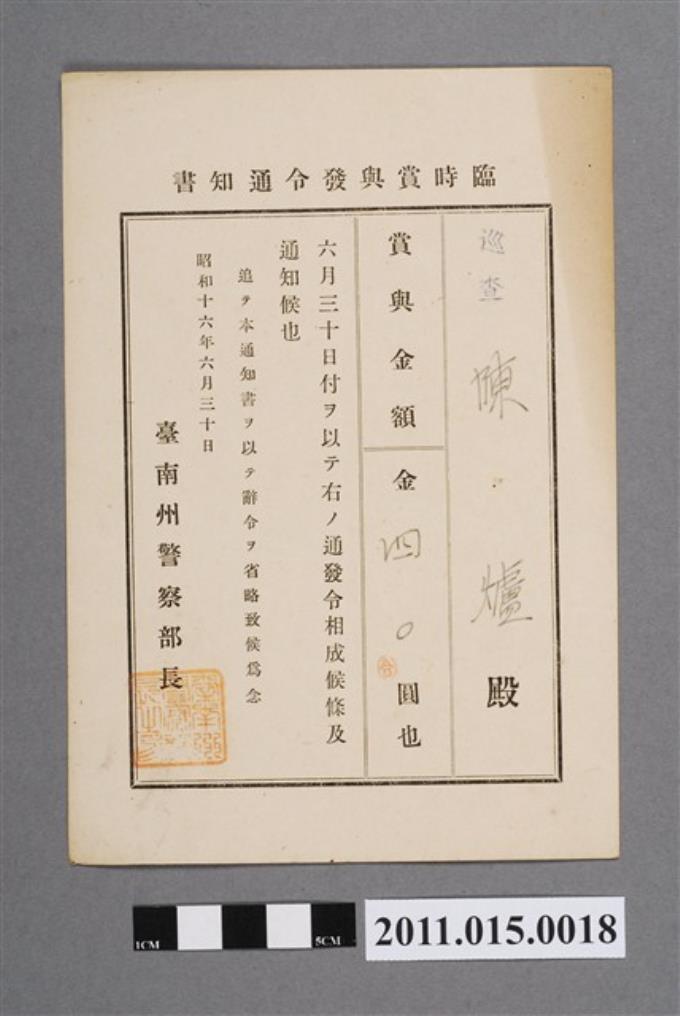 臨時賞與發令通知書
巡査 陳爐殿
賞與金額 金四〇圓也
六月三十日付ヲ以テ右ノ通發令相成候條及
通知候也
追テ本通知書ヲ以テ辭令ヲ省略致候爲念
昭和十六年六月三十日
臺南州警察部長
1CM
5CM
2011.015.0018